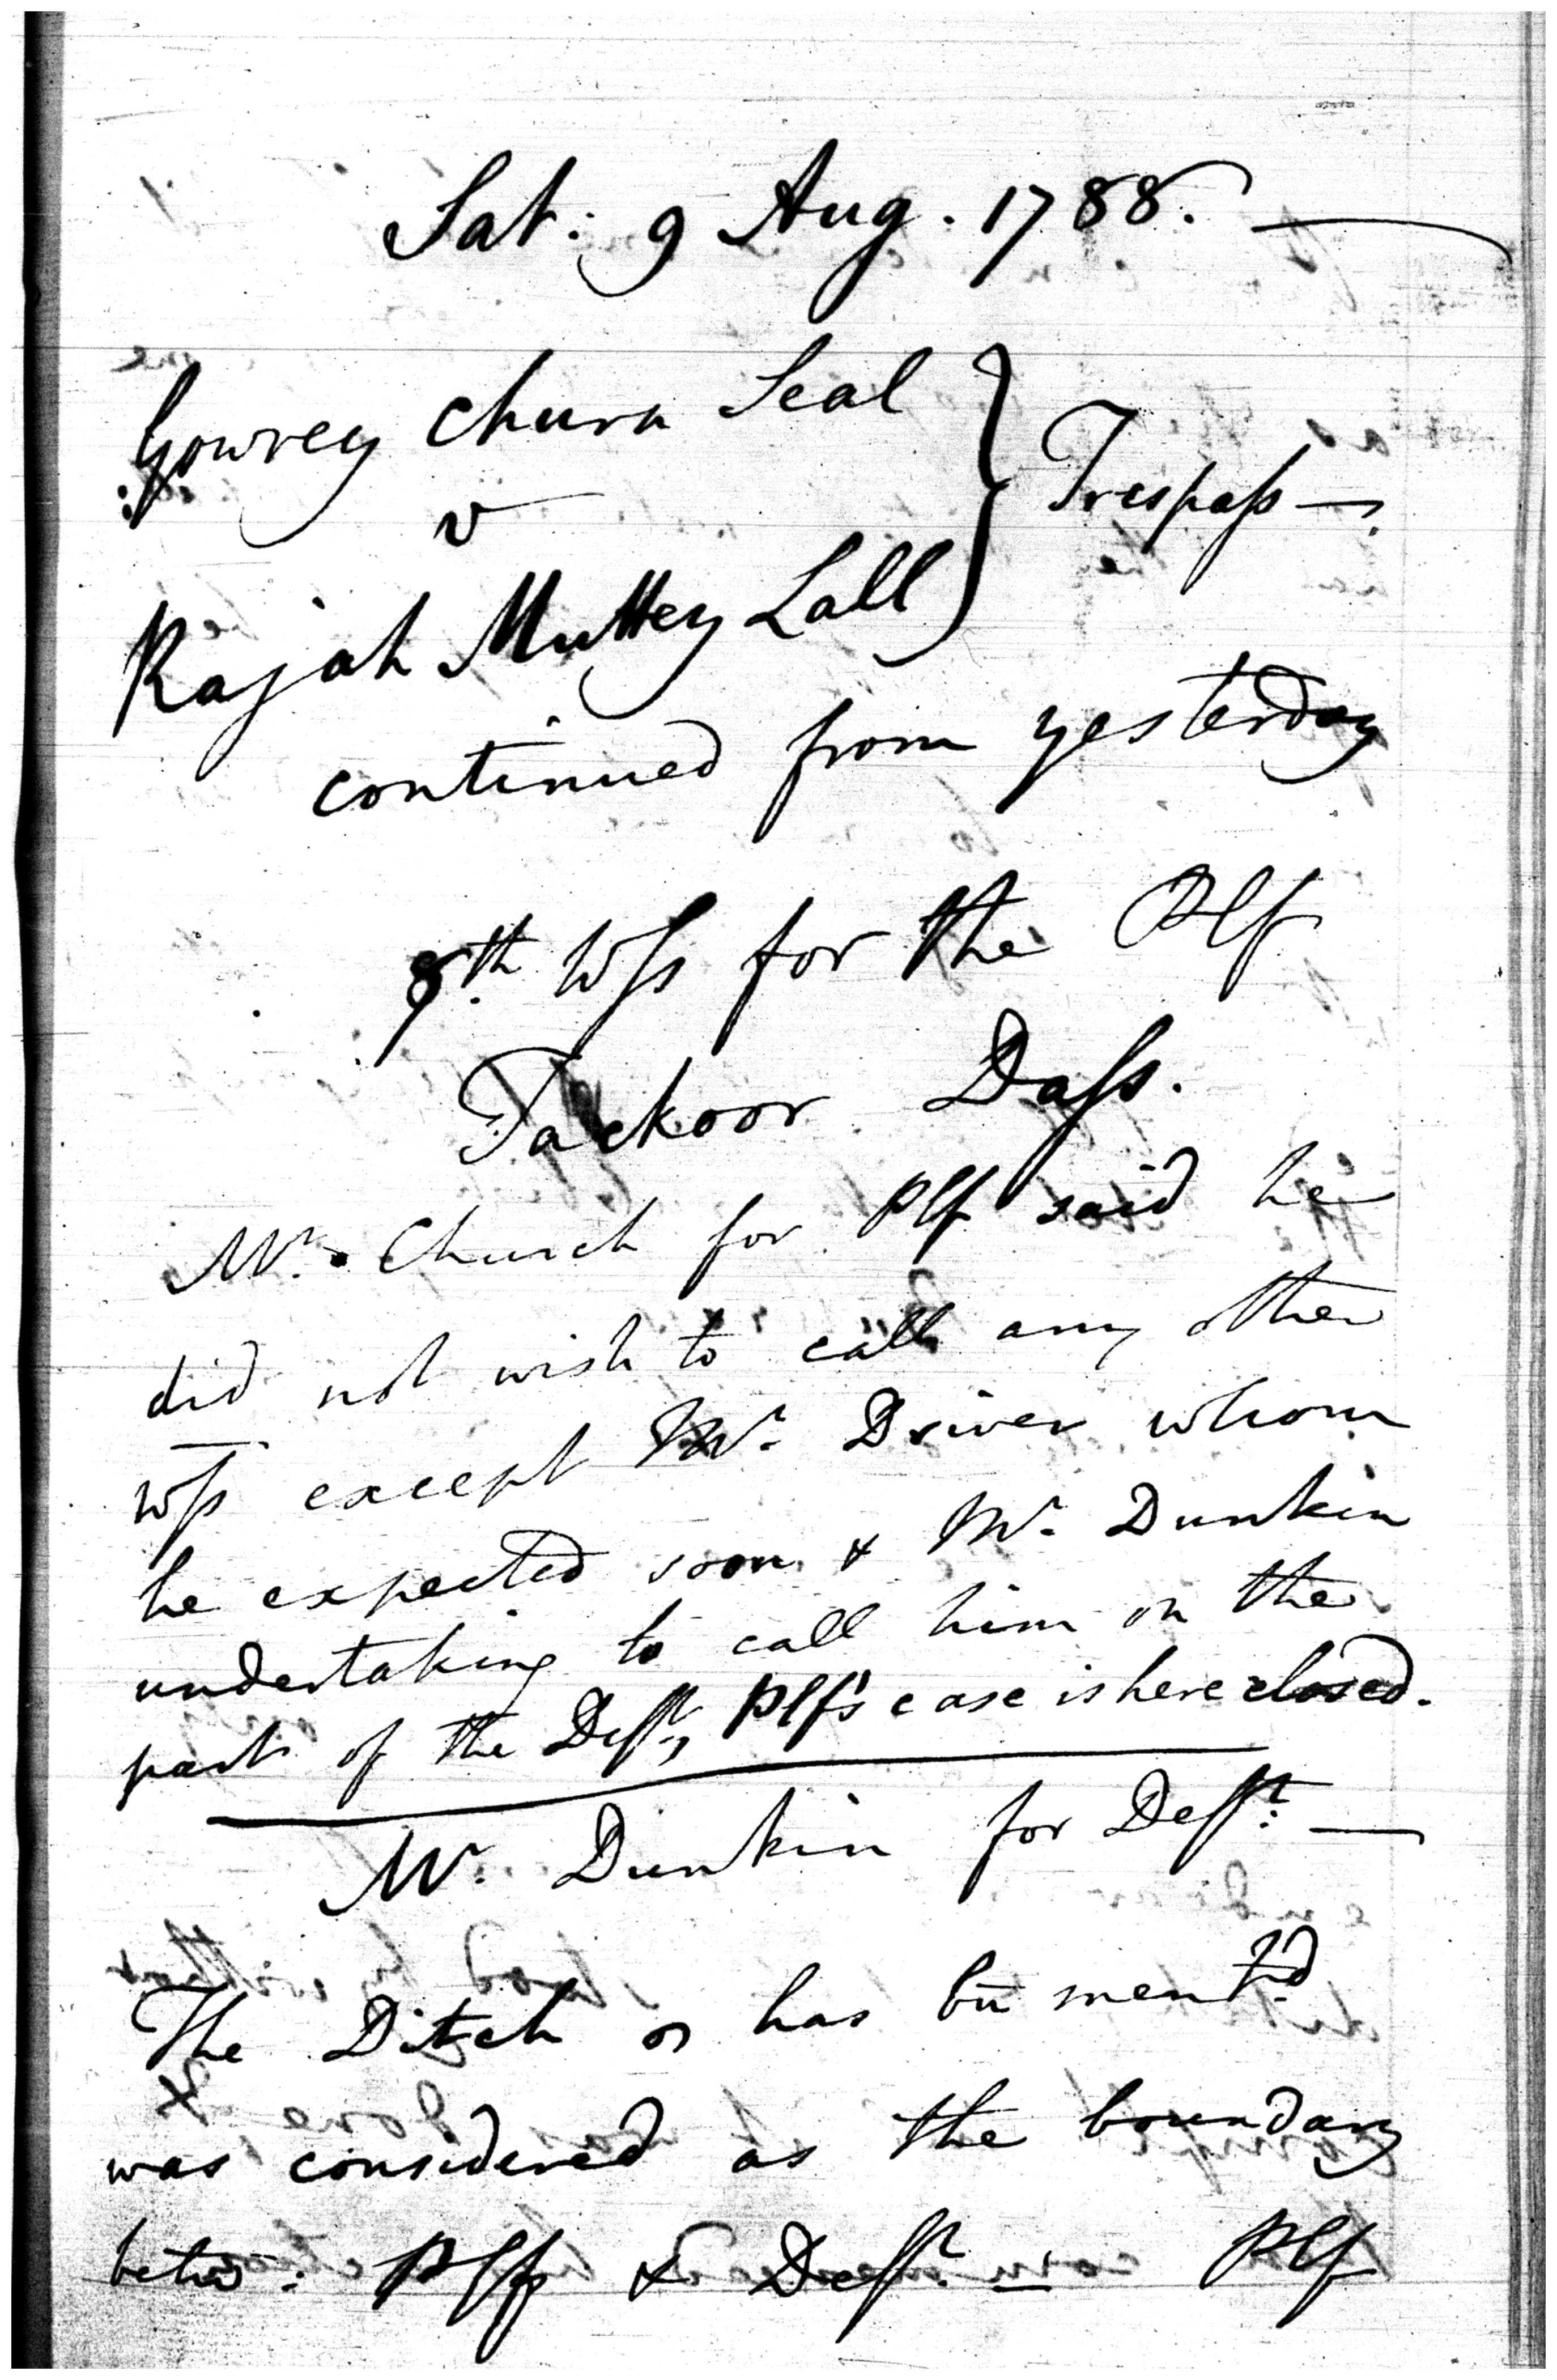 Sat: 9 Aug. 1788. —
Gowrey Churn Seal
v
Trespass —
Rajah Muttey Lall
continued from yesterday
8th. Wss for the Plf
Tackoor Dass.
Mr. Church for Plf said he
did not wish to call any other
Wss except Mr. Driver whom
he expected soon & Mr. Dunkin
undertaking to call him on the
part of the Deft., Plf's case is here closed.
Mr. Dunkin for Deft. —
The Ditch as has bn mentd.
was considered as the boundary
betw: Plf & Deft. — Plf